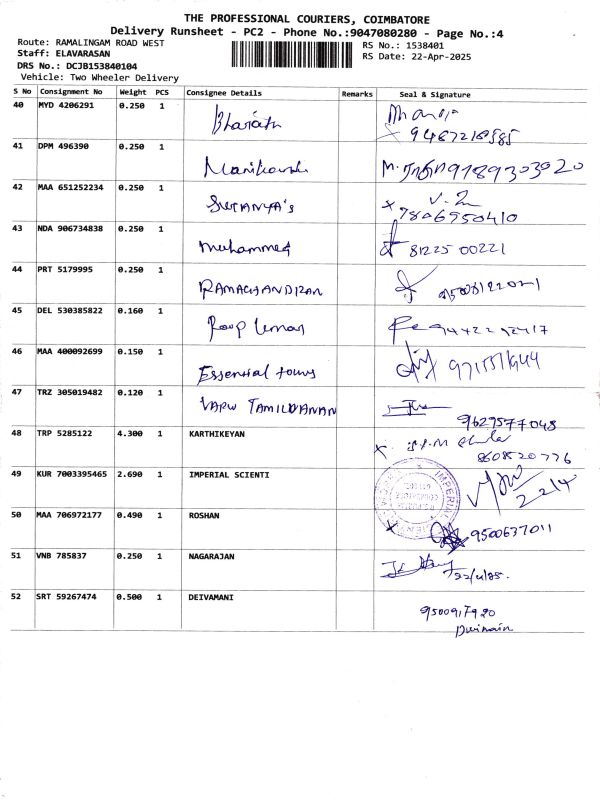 THE PROFESSIONAL COURIERS, COIMBATORE
Delivery Runsheet - PC2 - Phone No.:9047080280 - Page No.:4
Route: RAMALINGAM ROAD WEST
RS No.: 1538401
Staff: ELAVARASAN
RS Date: 22-Apr-2025
DRS No.: DCJB153840104
Vehicle: Two Wheeler Delivery
S No Consignment No Weight PCS Consignee Details Remarks Seal & Signature
40 MYD 4206291 0.250 1 Bharath
41 DPM 496390 0.250 1 9789303020
42 MAA 651252234 0.250 1
7806950410
43 NDA 906734838 0.250 1 Muhammed 81225 00221
44 PRT 5179995 0.250 1 RAMACHANDIRAN
45 DEL 530385822 0.160 1
46 MAA 400092699 0.150 1 Essential tours
47 TRZ 305019482 0.120 1 TAMILVANAN
9629577048
48 TRP 5285122 4.300 1 KARTHIKEYAN
8608520776
49 KUR 7003395465 2.690 1 IMPERIAL SCIENTI
50 MAA 706972177 0.490 1 ROSHAN
9500637011
51 VNB 785837 0.250 1 NAGARAJAN
52 SRT 59267474 0.500 1 DEIVAMANI
9500917920